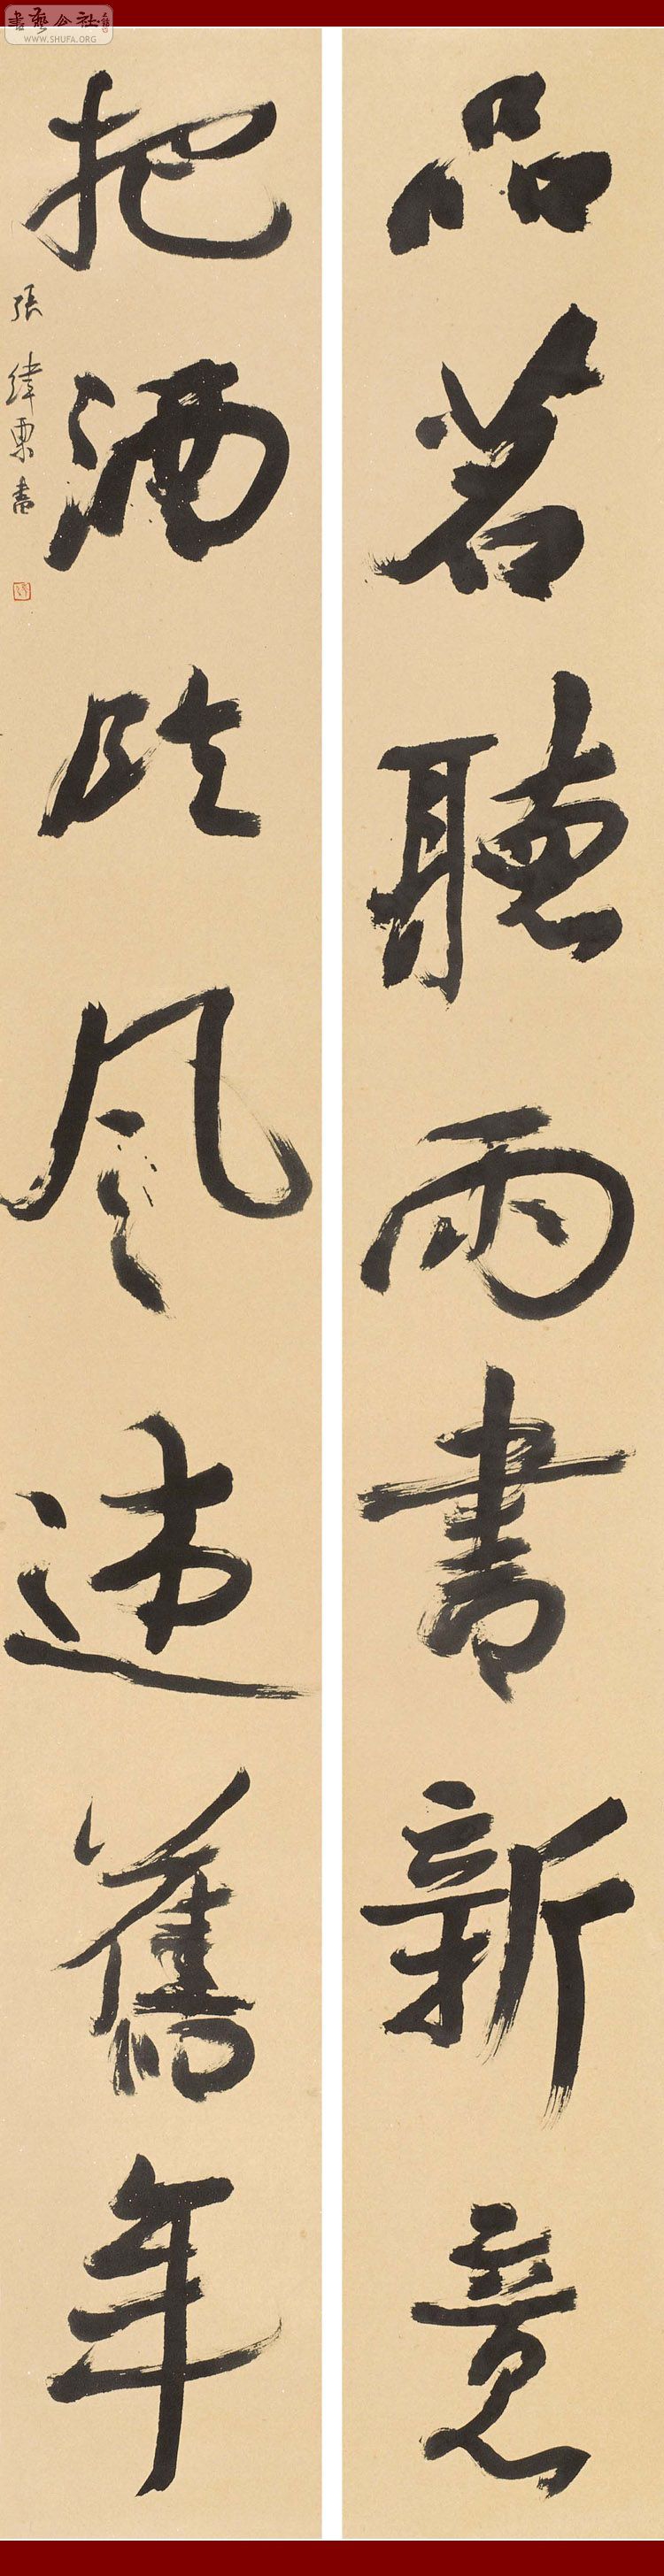 書藝公社
WWW.SHUFA.ORG
品茗聽雨書新意
把酒臨風舊年
張緯書